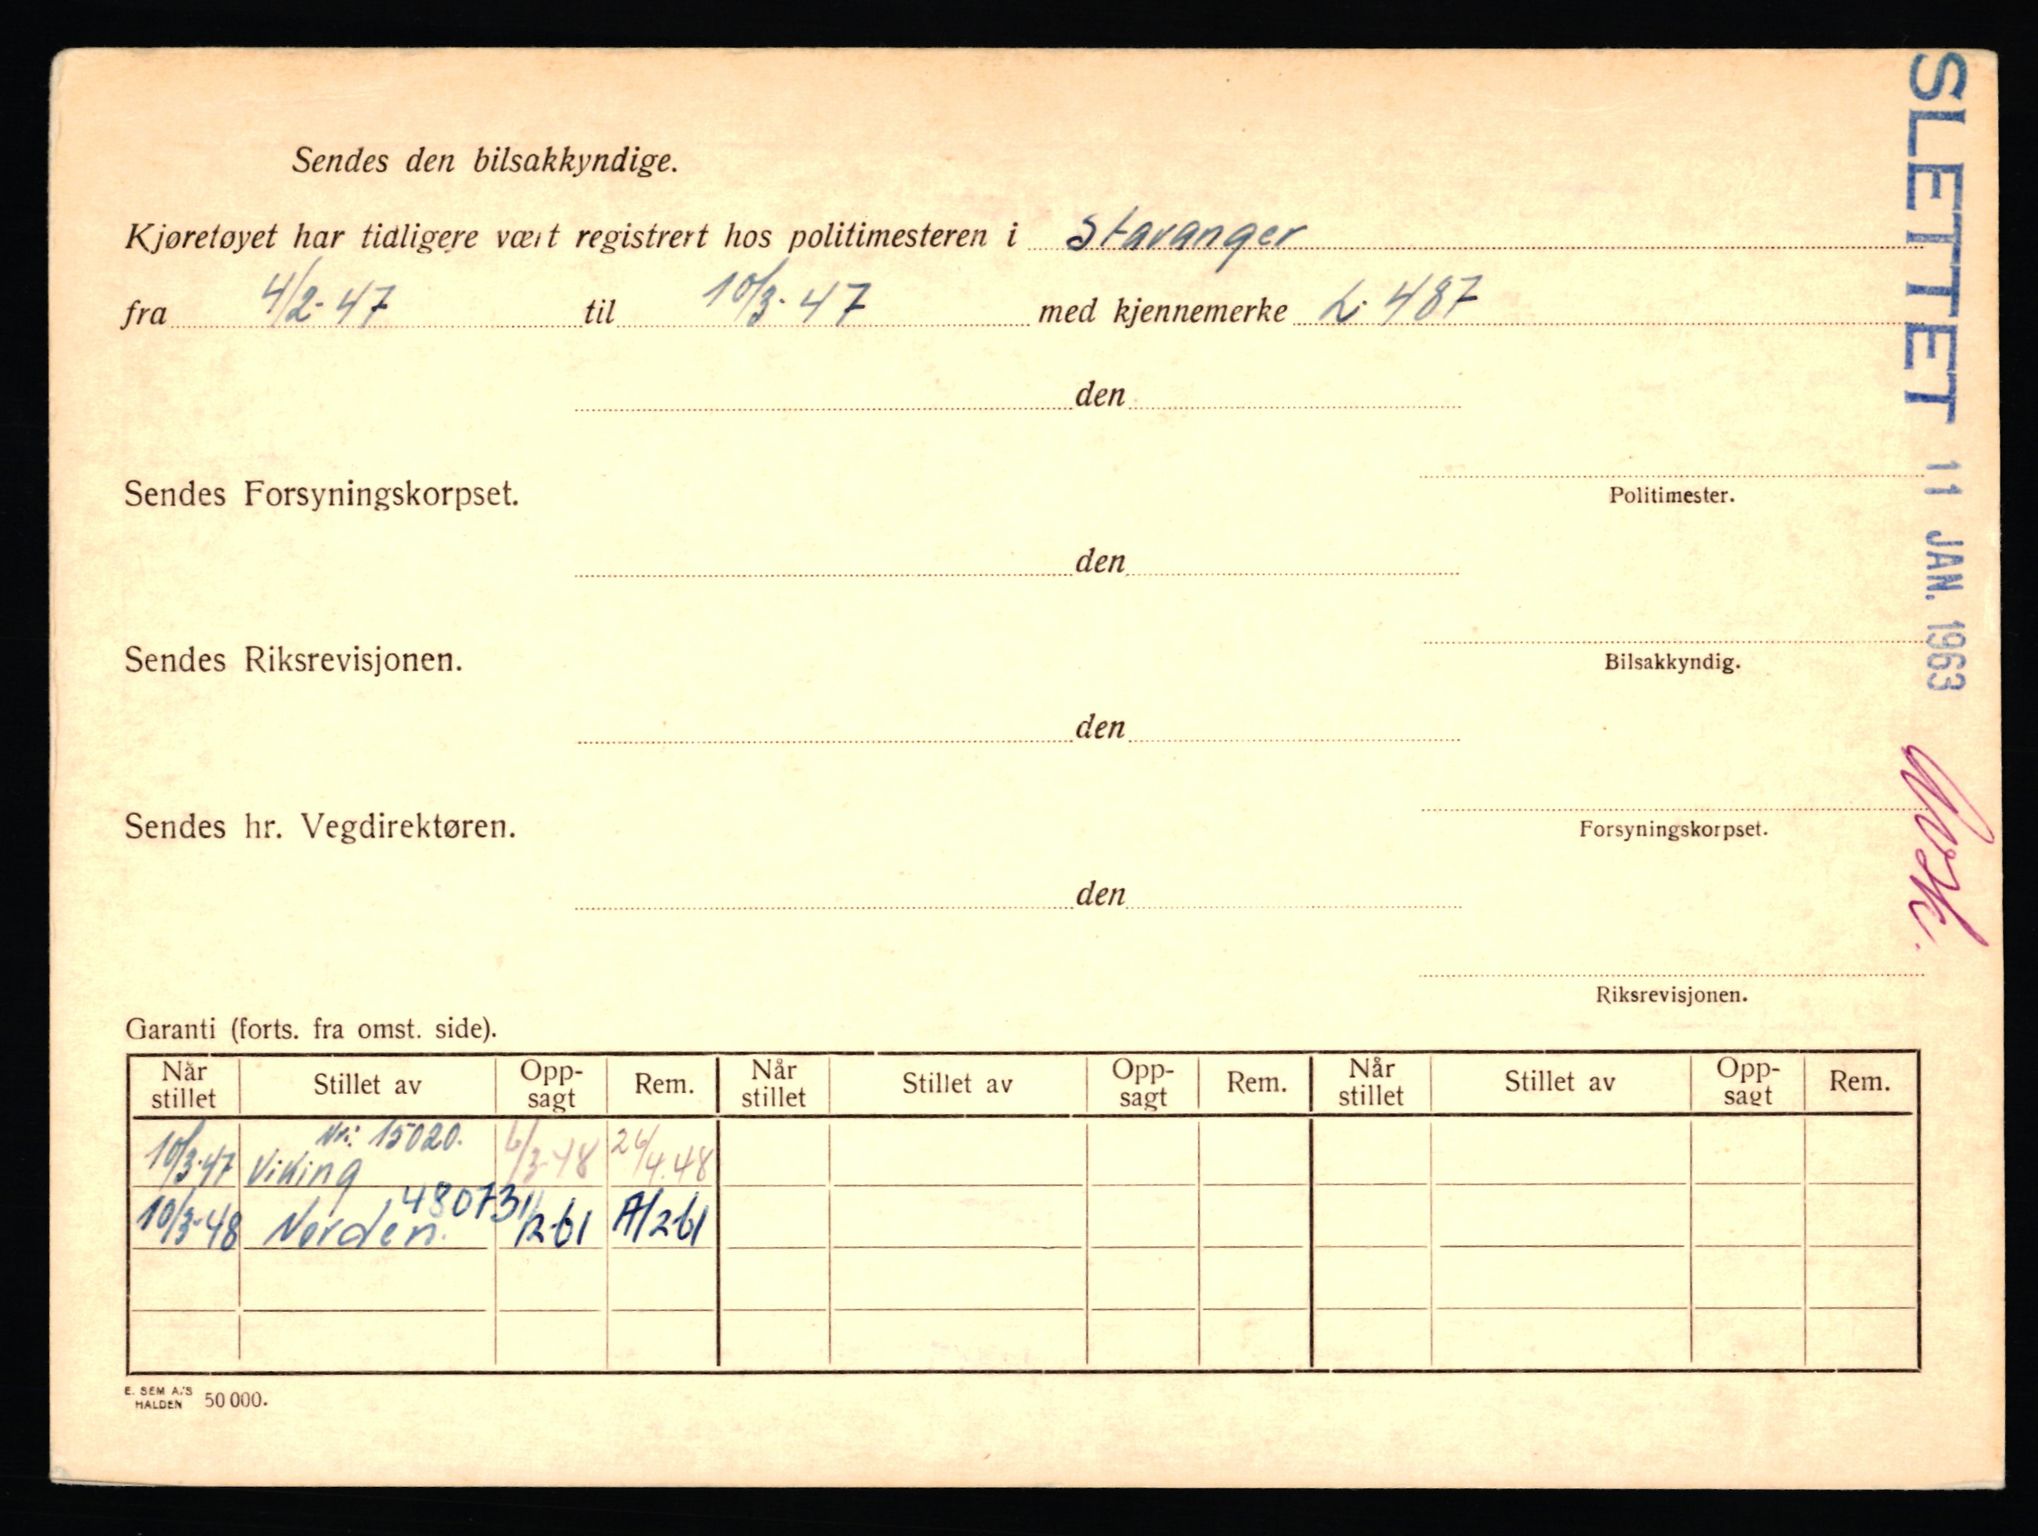 Sendes den bilsakkyndige.
Kjøretøyet har tidligere vært registrert hos politimesteren i Stavanger
fra 4/2-47 til 10/3-47 med kjennemerke L-487
den
Politimester.
Sendes Forsyningskorpset.
den
Bilsakkyndig.
Sendes Riksrevisjonen.
den
Forsyningskorpset.
Sendes hr. Vegdirektøren.
den
Riksrevisjonen.
SLETTET 11 JAN. 1963
Garanti (forts. fra omst. side).
Når stillet Stillet av Opp-sagt Rem. Når stillet Stillet av Opp-sagt Rem. Når stillet Stillet av Opp-sagt Rem.
Nr: 15020.
10/3-47 Viking 6/3-48 26/4.48
480731
10/3-48 Norden. 2-61
E. SEM A.'S HALDEN 50 000.